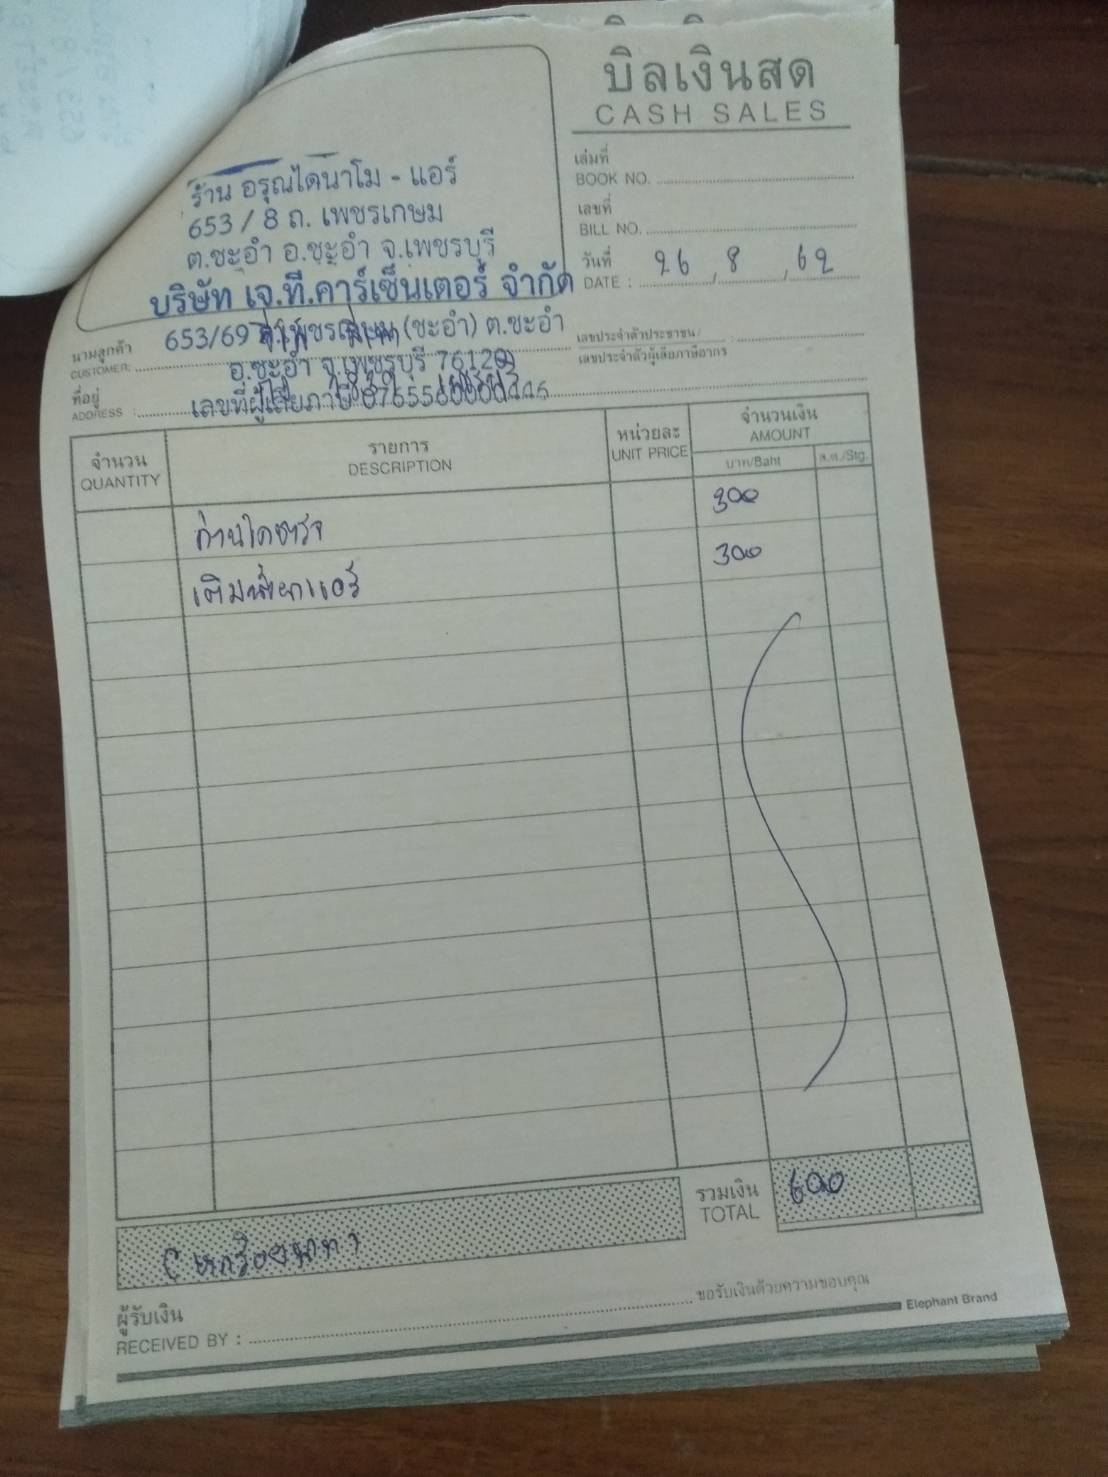 บิลเงินสด
CASH SALES
ร้าน อรุณไดนาโม - แอร์
653 / 8 ถ. เพชรเกษม
ต.ชะอำ อ.ชะอำ จ.เพชรบุรี
เล่มที่
BOOK NO.
เลขที่
BILL NO.
วันที่
DATE : 26 / 8 / 62
บริษัท เจ.ที.คาร์เซ็นเตอร์ จำกัด
653/69 ถ.เพชรเกษม (ชะอำ) ต.ชะอำ
อ.ชะอำ จ.เพชรบุรี 76120
เลขที่ผู้เสียภาษี
นามลูกค้า
CUSTOMER:
ที่อยู่
ADDRESS :
เลขประจำตัวประชาชน/
เลขประจำตัวผู้เสียภาษีอากร
จำนวน
QUANTITY
รายการ
DESCRIPTION
หน่วยละ
UNIT PRICE
จำนวนเงิน
AMOUNT
บาท/Baht
ส.ต./Stg.
300
เติมน้ำยาแอร์ 300
รวมเงิน
TOTAL
600
(หกร้อยบาท)
ผู้รับเงิน
RECEIVED BY :
ขอรับเงินด้วยความขอบคุณ
Elephant Brand